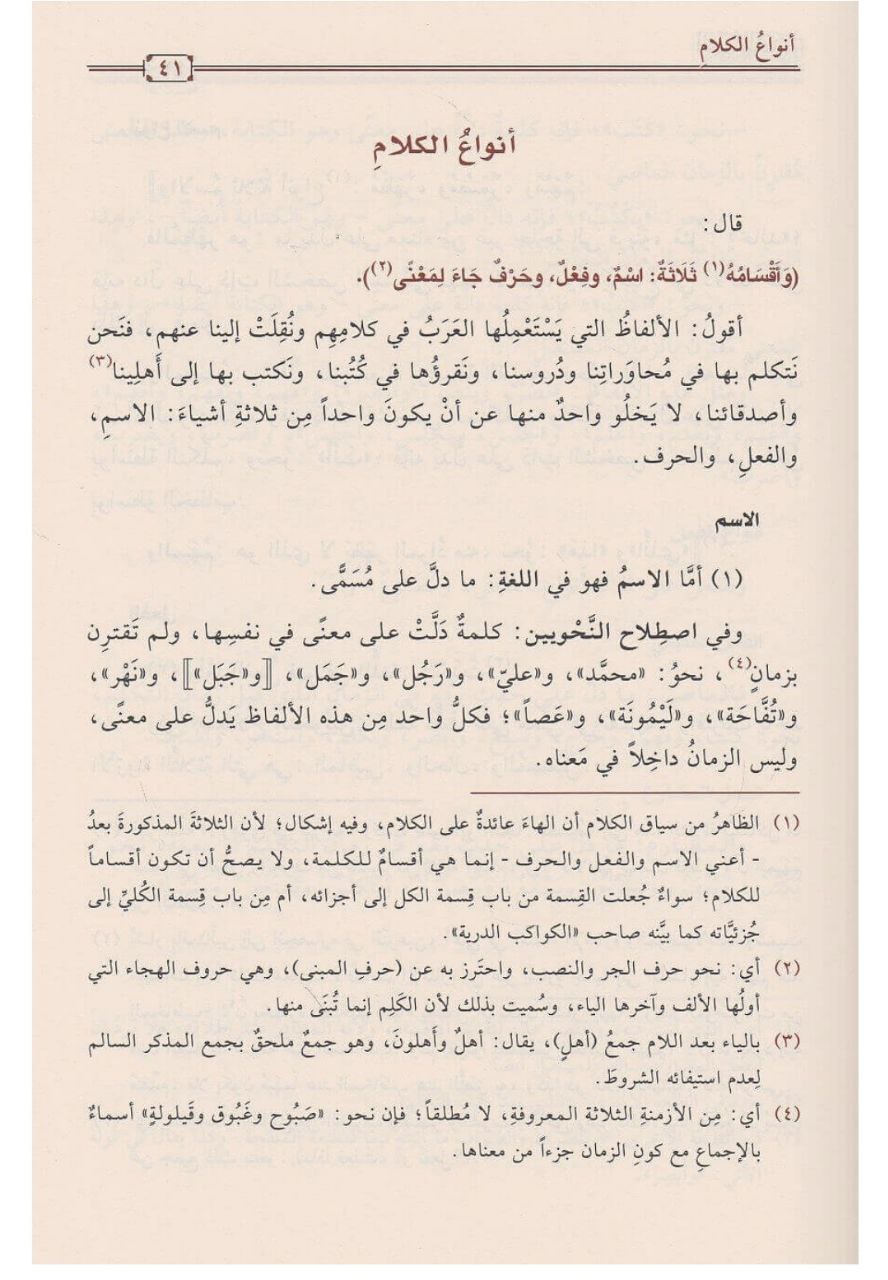 أنواعُ الكلامِ
٤١
أنواعُ الكلامِ
قال:
(وَأَقْسَامُهُ(١) ثَلَاثَةٌ: اسْمٌ، وفِعْلٌ، وحَرْفٌ جَاءَ لِمَعْنًى(٢)).
أقولُ: الألفاظُ التي يَسْتَعْمِلُها العَرَبُ في كلامِهِم ونُقِلَتْ إلينا عنهم، فنَحن
نَتكلم بها في مُحاوَراتِنا ودُروسنا، ونَقرؤُها في كُتُبنا، ونَكتب بها إلى أَهلِينا(٣)
وأصدقائنا، لا يَخلُو واحدٌ منها عن أنْ يكونَ واحداً مِن ثلاثةِ أشياءَ: الاسمِ،
والفعلِ، والحرف.
الاسم
(١) أمَّا الاسمُ فهو في اللغةِ: ما دلَّ على مُسَمًّى.
وفي اصطِلاح النَّحْويين: كلمةٌ دَلَّتْ على معنًى في نفسِها، ولم تَقترِن
بزمانٍ(٤)، نحوُ: «محمَّد»، و«عليّ»، و«رَجُل»، و«جَمَل»، [و«جَبَل»]، و«نَهْر»،
و«تُفَّاحَة»، و«لَيْمُونَة»، و«عَصاً»؛ فكلُّ واحد مِن هذه الألفاظ يَدلُّ على معنًى،
وليس الزمانُ داخِلاً في مَعناه.
(١) الظاهرُ من سياق الكلام أن الهاءَ عائدةٌ على الكلام، وفيه إشكال؛ لأن الثلاثةَ المذكورةَ بعدُ
- أعني الاسم والفعل والحرف - إنما هي أقسامٌ للكلمة، ولا يصحُّ أن تكون أقساماً
للكلام؛ سواءٌ جُعلت القِسمة من باب قِسمة الكل إلى أجزائه، أم مِن باب قِسمة الكُليِّ إلى
جُزئيَّاته كما بيَّنه صاحب «الكواكب الدرية».
(٢) أي: نحو حرف الجر والنصب، واحتَرز به عن (حرفِ المبنى)، وهي حروف الهجاء التي
أولُها الألف وآخرها الياء، وسُميت بذلك لأن الكَلِم إنما تُبنَى منها.
(٣) بالياء بعد اللام جمعُ (أهلٍ)، يقال: أهلٌ وأَهلونَ، وهو جمعٌ ملحقٌ بجمع المذكر السالم
لِعدم استيفائه الشروطَ.
(٤) أي: مِن الأزمنةِ الثلاثة المعروفةِ، لا مُطلقاً؛ فإن نحو: «صَبُوح وغَبُوق وقَيلولةٍ» أسماءٌ
بالإجماعِ مع كونِ الزمان جزءاً من معناها.